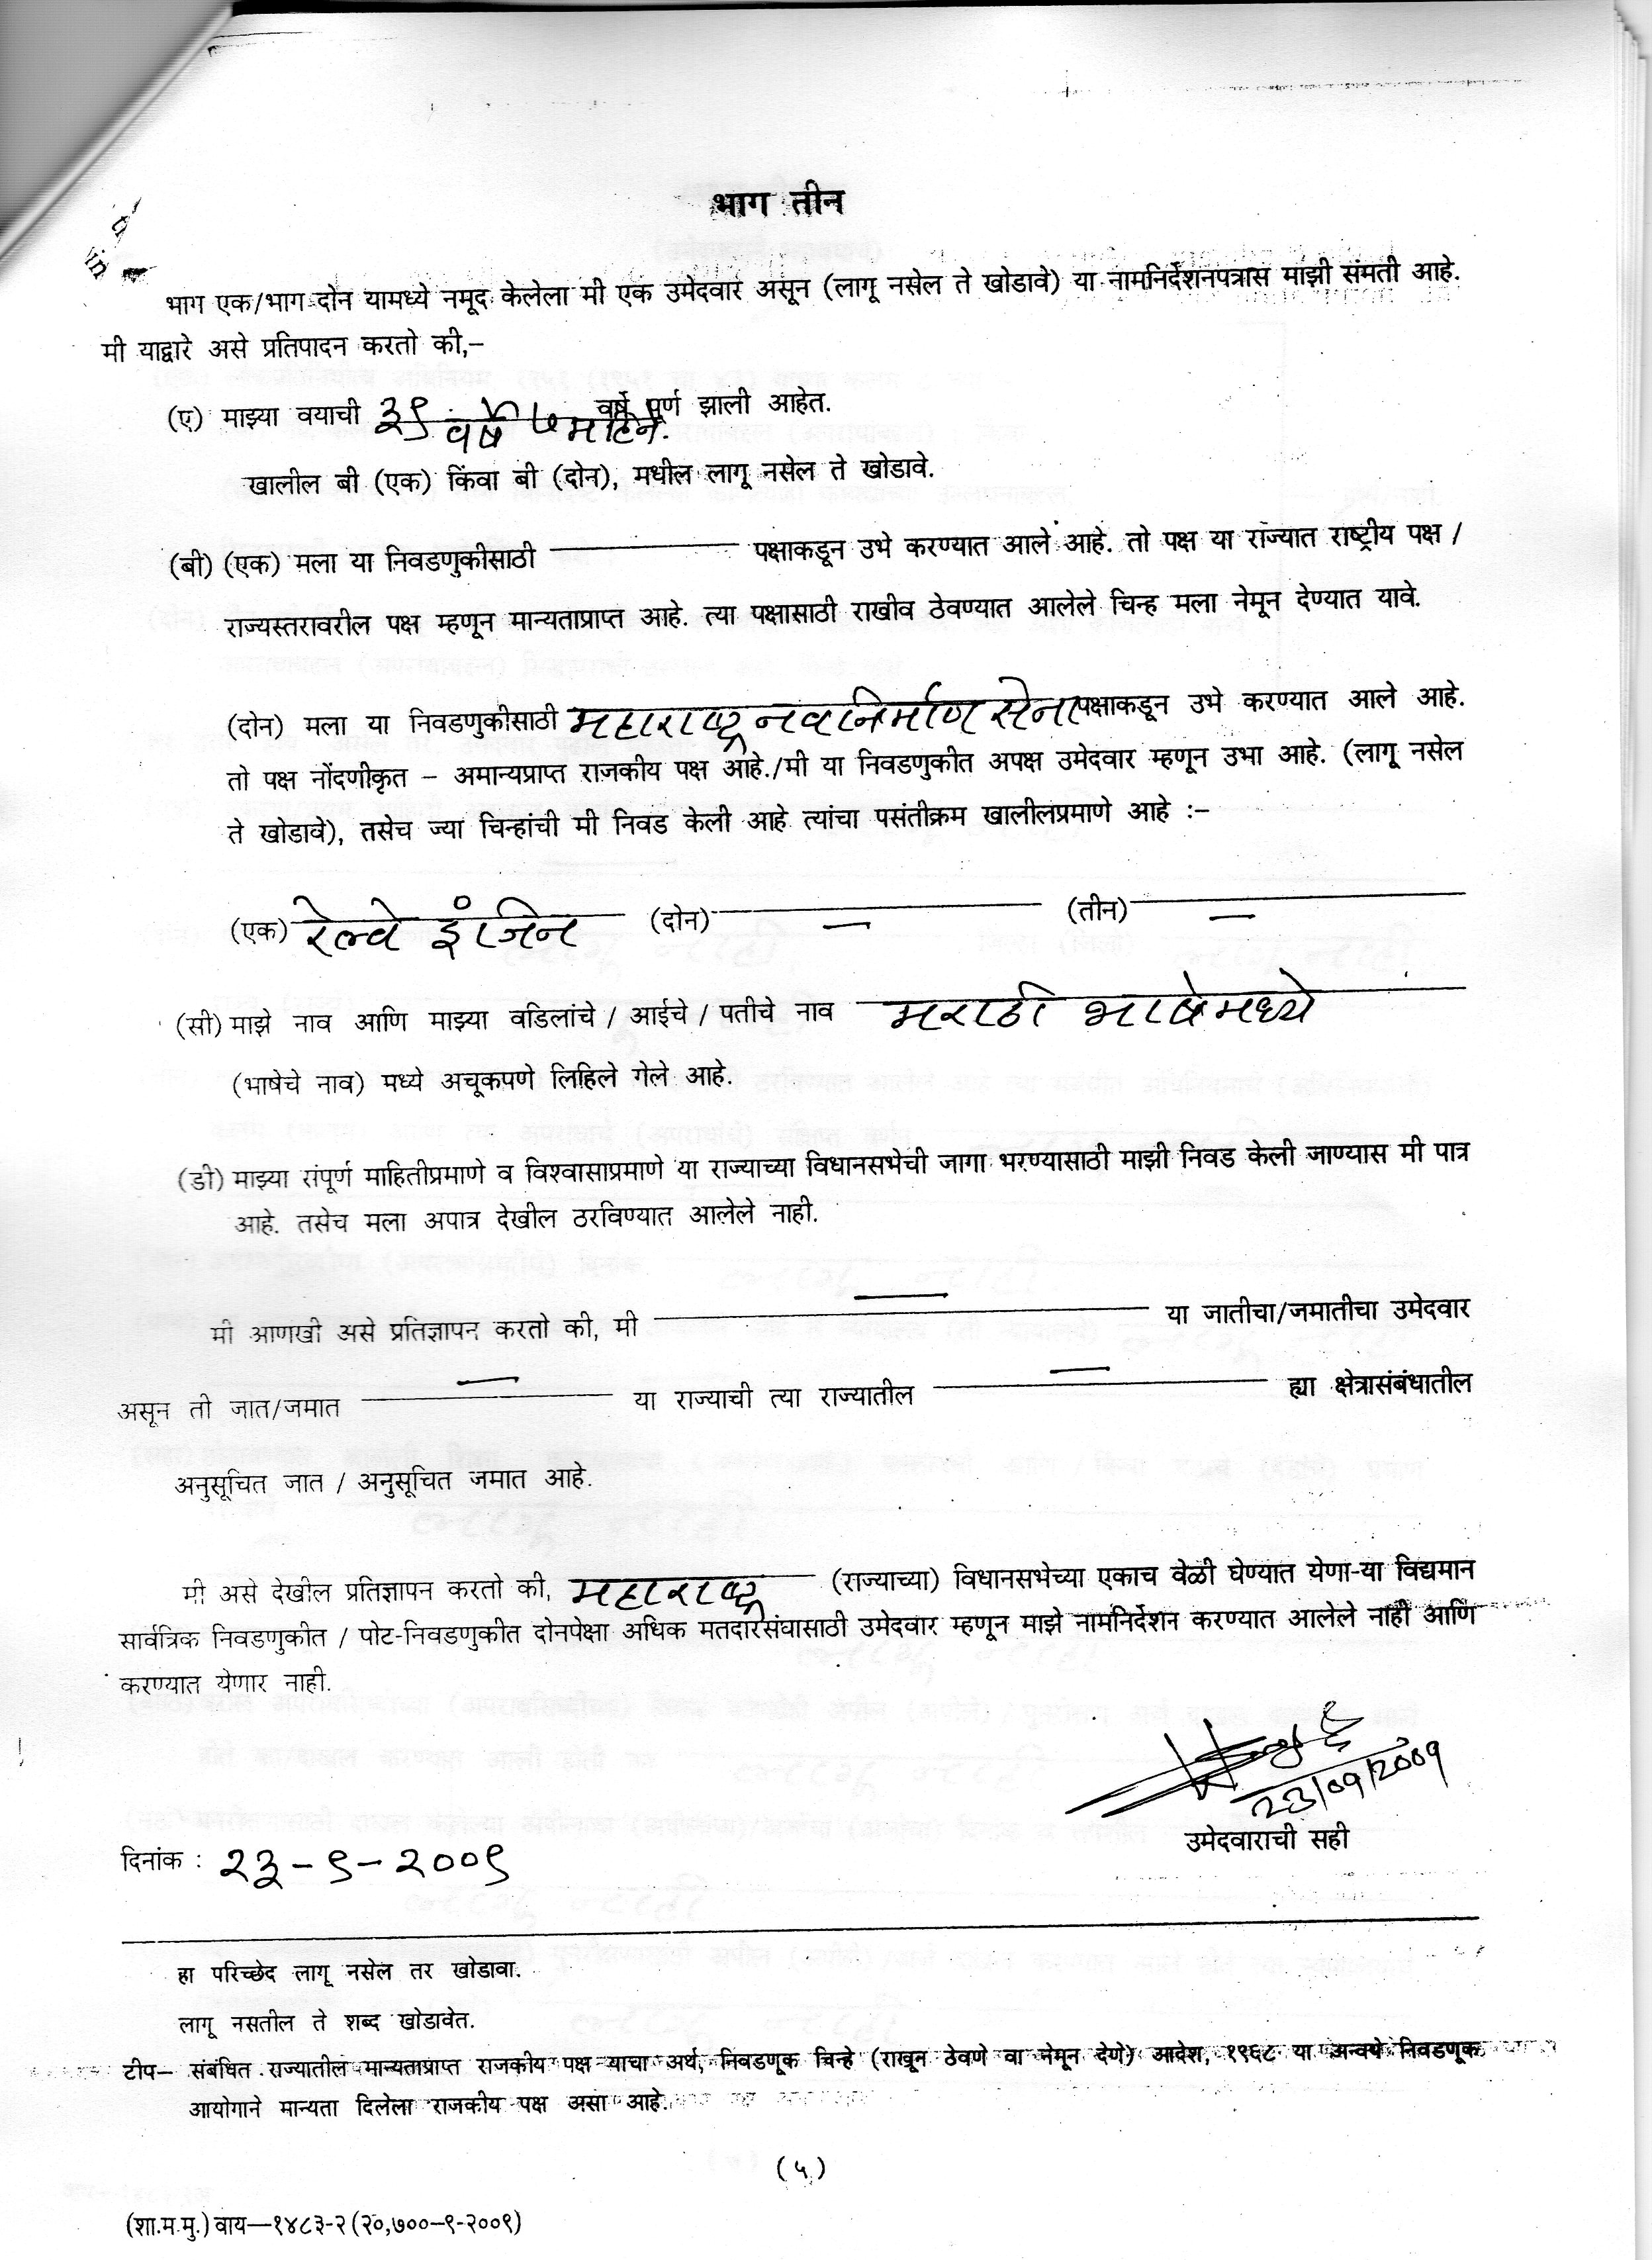 भाग तीन
भाग एक/भाग दोन यामध्ये नमूद केलेला मी एक उमेदवार असून (लागू नसेल ते खोडावे) या नामनिर्देशनपत्रास माझी संमती आहे.
मी याद्वारे असे प्रतिपादन करतो की,–
(ए) माझ्या वयाची ३९ वर्षे ७ महिने. वर्षे पूर्ण झाली आहेत.
खालील बी (एक) किंवा बी (दोन), मधील लागू नसेल ते खोडावे.
(बी) (एक) मला या निवडणुकीसाठी ——— पक्षाकडून उभे करण्यात आले आहे. तो पक्ष या राज्यात राष्ट्रीय पक्ष /
राज्यस्तरावरील पक्ष म्हणून मान्यताप्राप्त आहे. त्या पक्षासाठी राखीव ठेवण्यात आलेले चिन्ह मला नेमून देण्यात यावे.
(दोन) मला या निवडणुकीसाठी महाराष्ट्र नवनिर्माण सेना पक्षाकडून उभे करण्यात आले आहे.
तो पक्ष नोंदणीकृत – अमान्यप्राप्त राजकीय पक्ष आहे./मी या निवडणुकीत अपक्ष उमेदवार म्हणून उभा आहे. (लागू नसेल
ते खोडावे), तसेच ज्या चिन्हांची मी निवड केली आहे त्यांचा पसंतीक्रम खालीलप्रमाणे आहे :–
(एक) रेल्वे इंजिन (दोन) — (तीन) —
(सी) माझे नाव आणि माझ्या वडिलांचे / आईचे / पतीचे नाव मराठी भाषेमध्ये
(भाषेचे नाव) मध्ये अचूकपणे लिहिले गेले आहे.
(डी) माझ्या संपूर्ण माहितीप्रमाणे व विश्वासाप्रमाणे या राज्याच्या विधानसभेची जागा भरण्यासाठी माझी निवड केली जाण्यास मी पात्र
आहे. तसेच मला अपात्र देखील ठरविण्यात आलेले नाही.
मी आणखी असे प्रतिज्ञापन करतो की, मी — या जातीचा/जमातीचा उमेदवार
असून ती जात/जमात — या राज्याची त्या राज्यातील — ह्या क्षेत्रासंबंधातील
अनुसूचित जात / अनुसूचित जमात आहे.
मी असे देखील प्रतिज्ञापन करतो की, महाराष्ट्र (राज्याच्या) विधानसभेच्या एकाच वेळी घेण्यात येणा-या विद्यमान
सार्वत्रिक निवडणुकीत / पोट-निवडणुकीत दोनपेक्षा अधिक मतदारसंघासाठी उमेदवार म्हणून माझे नामनिर्देशन करण्यात आलेले नाही आणि
करण्यात येणार नाही.
२३/०९/२००९
उमेदवाराची सही
दिनांक : २३-९-२००९
हा परिच्छेद लागू नसेल तर खोडावा.
लागू नसतील ते शब्द खोडावेत.
टीप— संबंधित राज्यातील मान्यताप्राप्त राजकीय पक्ष याचा अर्थ, निवडणूक चिन्हे (राखून ठेवणे वा नेमून देणे) आदेश, १९६८ या अन्वये निवडणूक
आयोगाने मान्यता दिलेला राजकीय पक्ष असा आहे.
(५)
(शा.म.मु.) वाय—१४८३-२ (२०,७००–९-२००९)